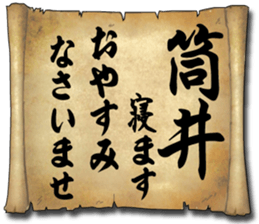 筒井
寝ます
おやすみ
なさいませ